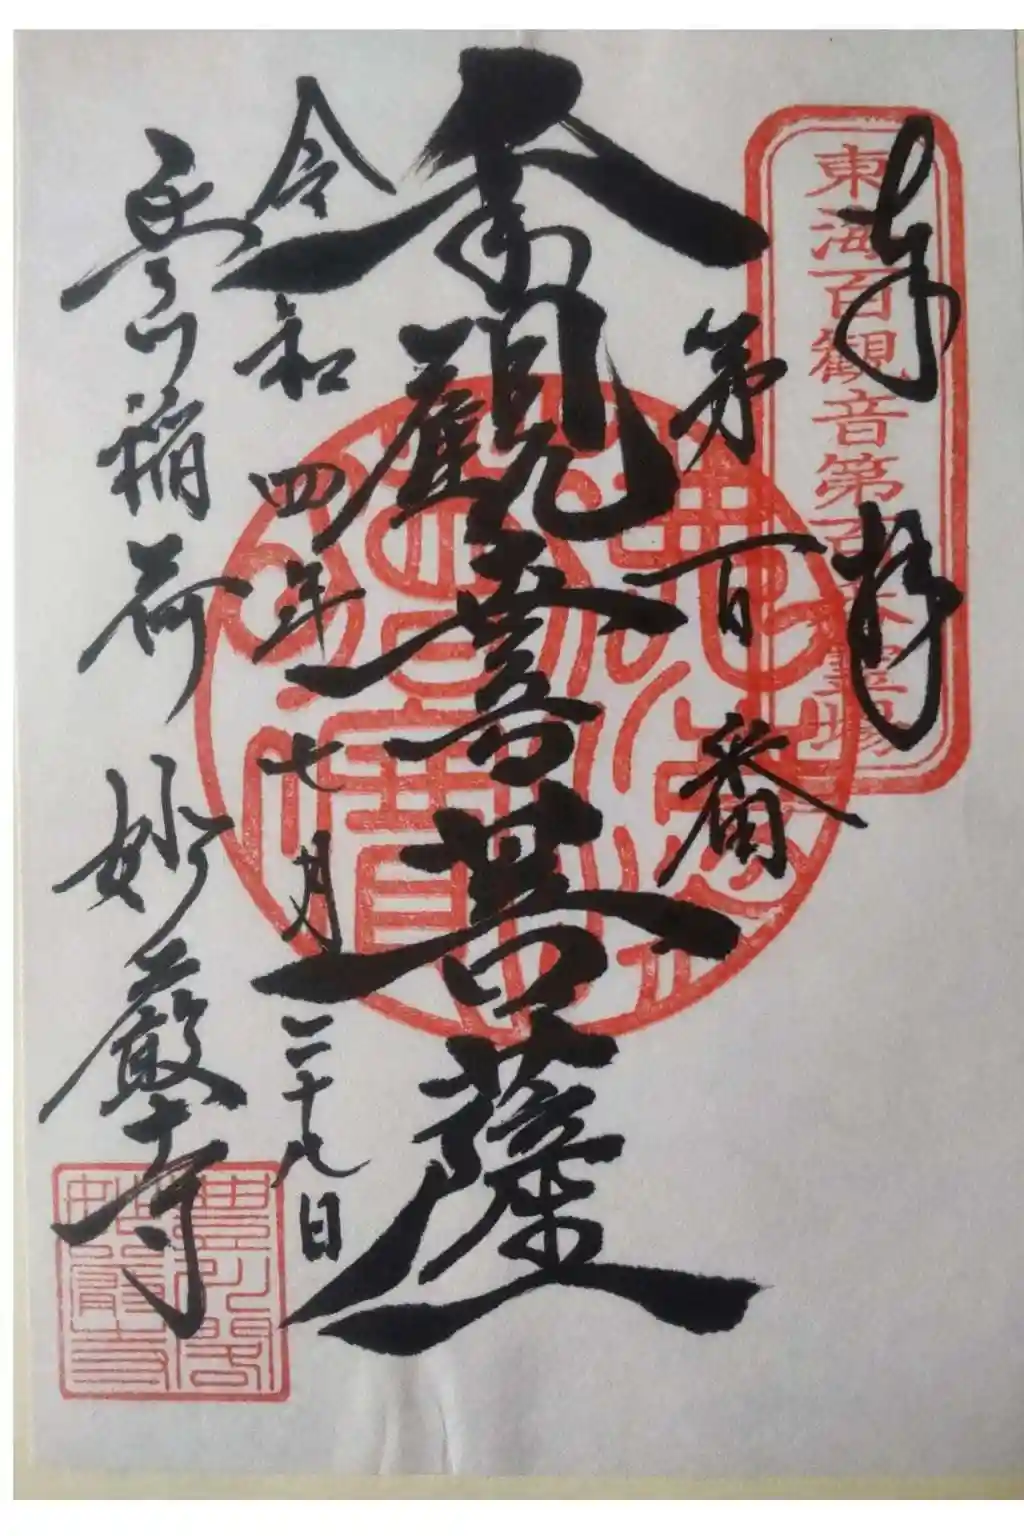 奉拝
東海百観音第百番霊場
第百番
千手観世音菩薩
令和四年七月二十九日
豊川稲荷 妙厳寺
佛法僧寶
豊川閣
妙嚴寺